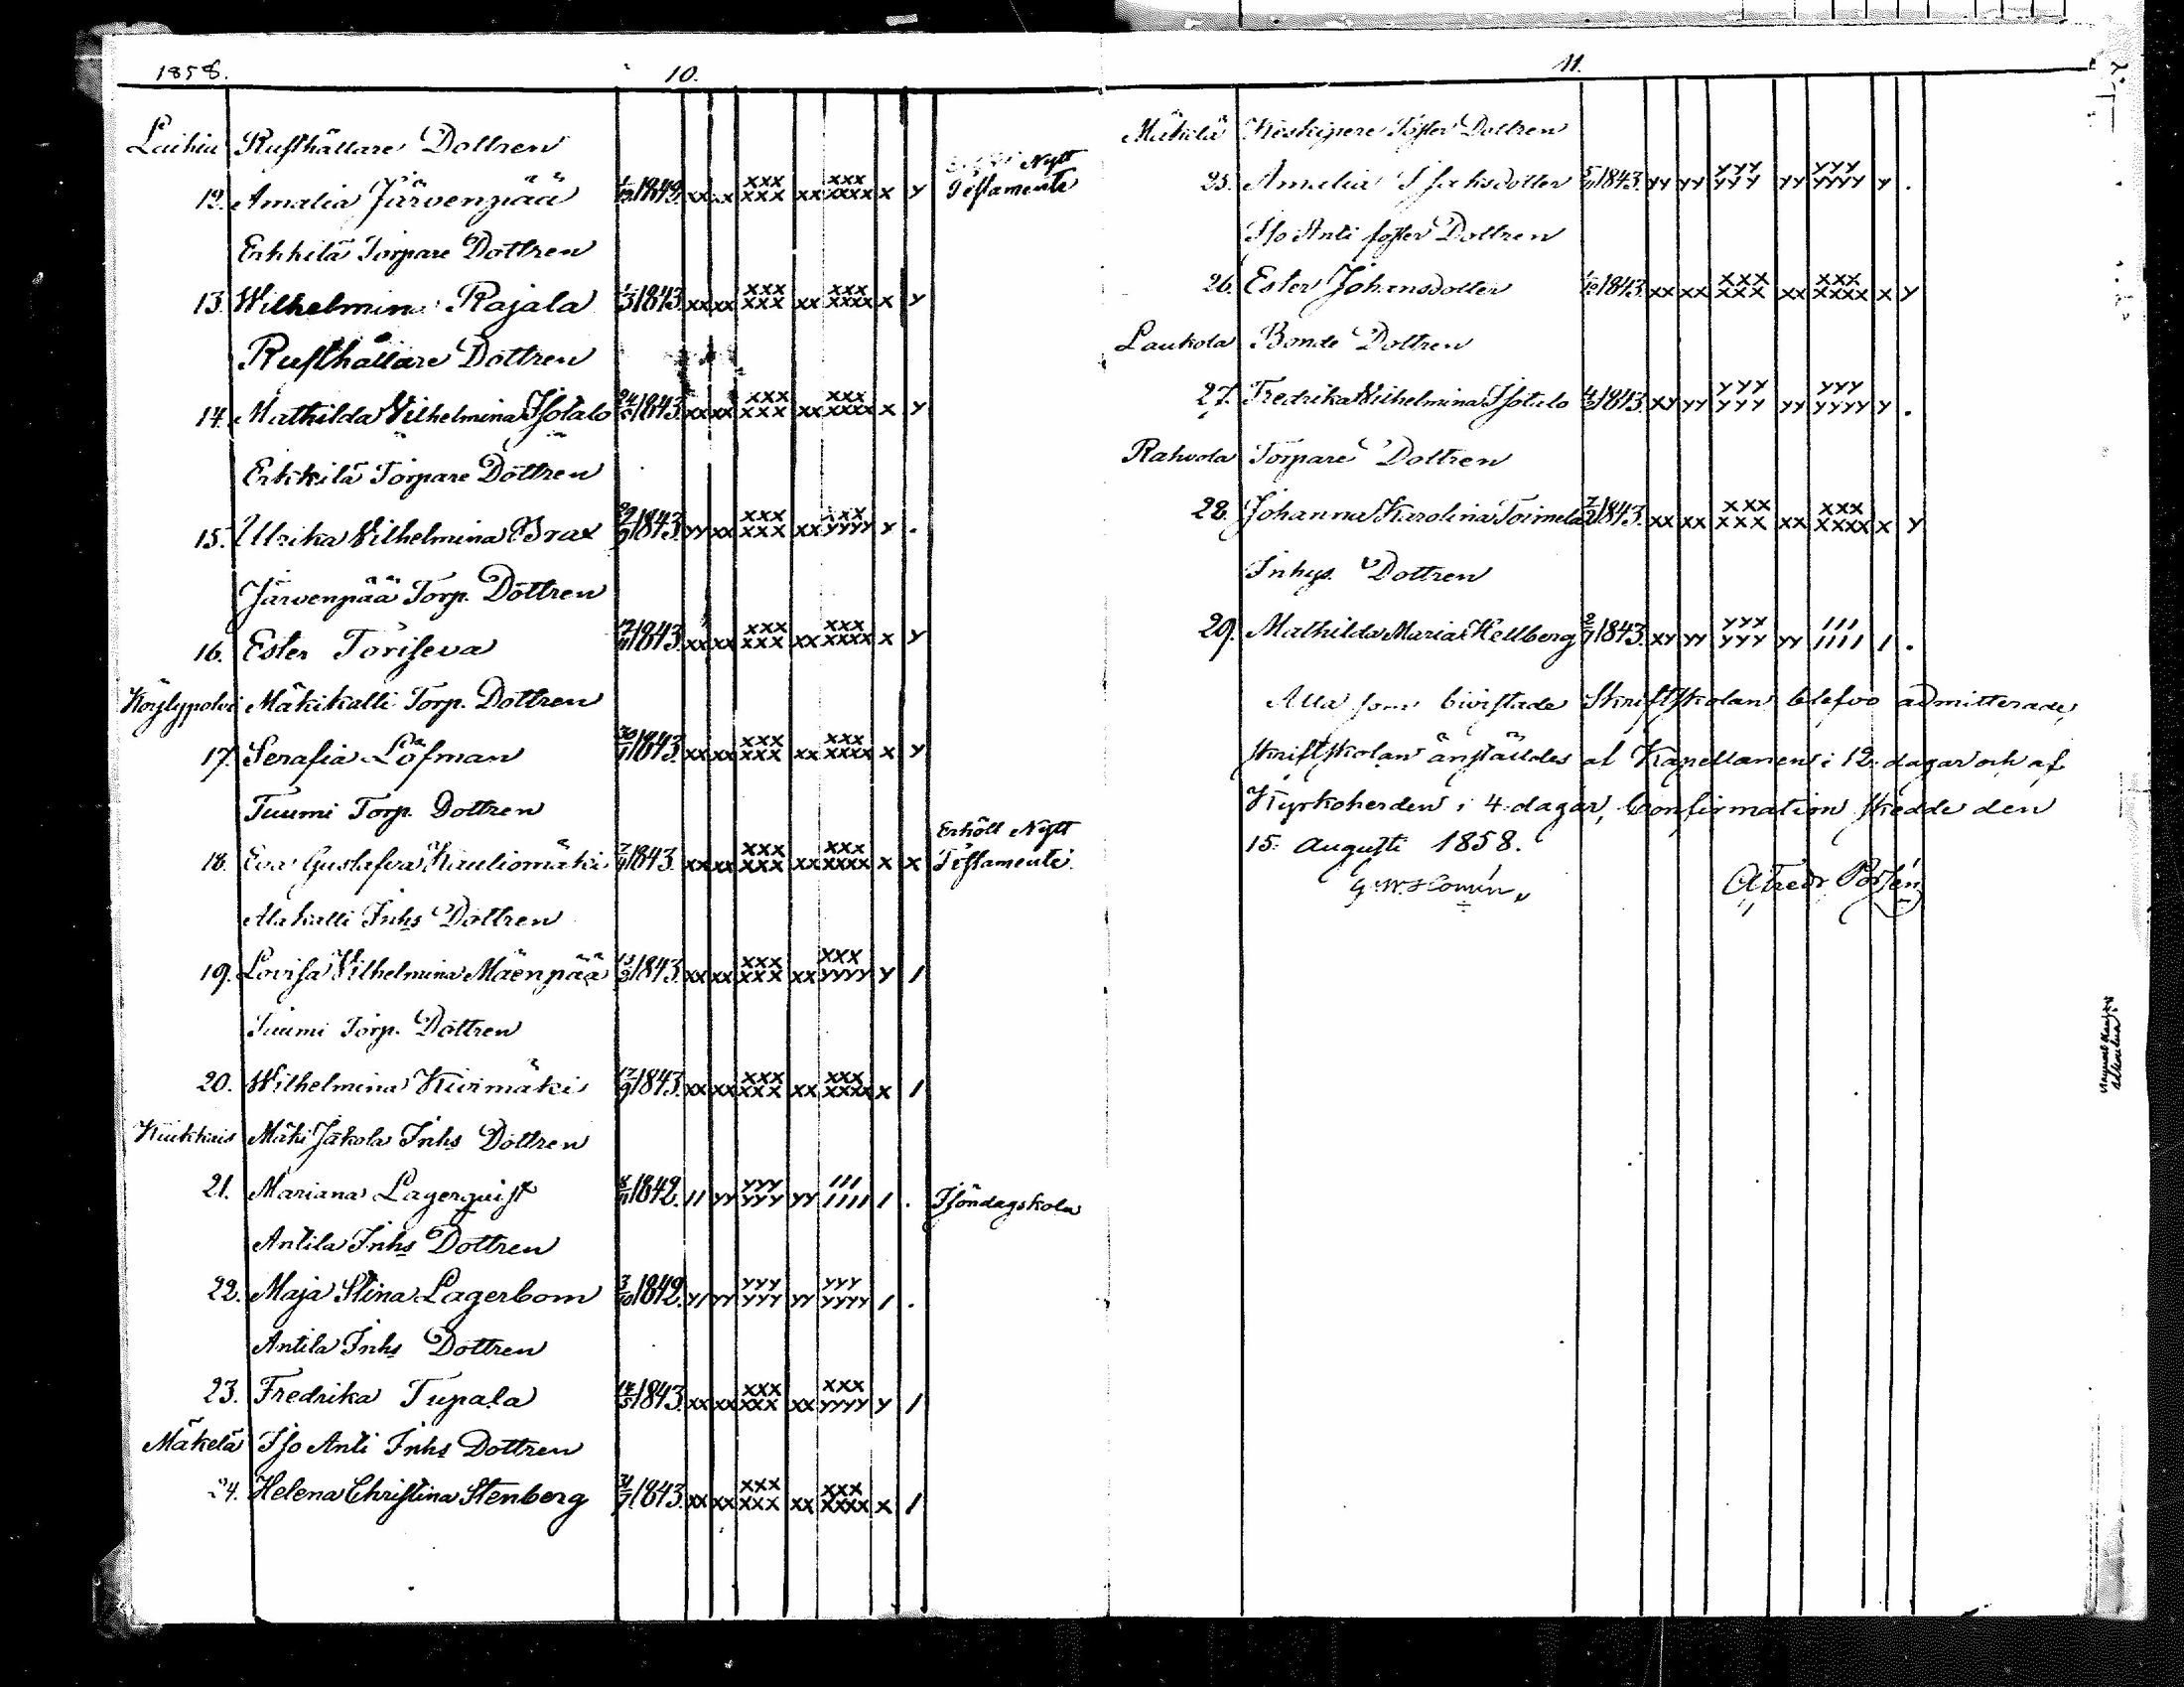 1858. 10.
Laihia Rusthållare Dottren
12. Amalia Järvenpää 1/12 1842. xx xx xxx xxx xx xxx xxxx x y Nytt Testamente
Erkkilä Torpare Dottren
13. Wilhelmina Rajala 1/3 1843. xx xx xxx xxx xx xxx xxxx x y
Rusthållare Dottren
14. Mathilda Vilhelmina Isotalo 24/5 1843. xx xx xxx xxx xx xxx xxxx x y
Erkkilä Torpare Dottren
15. Ulrika Vilhelmina Brax 29/9 1843. yy xx xxx xxx xx xxx yyyy y .
Järvenpää Torp. Dottren
16. Ester Toriseva 1843. xx xx xxx xxx xx xxx xxxx x y
Köylypolvi Mäkikalli Torp. Dottren
17. Serafia Löfman 30/1 1843. xx xx xxx xxx xx xxx xxxx x y
Tuumi Torp. Dottren
18. Eva Gustafva Kauliomäki 1843. xx xx xxx xxx xx xxx xxxx x x Erhöll Nytt Testamente.
Alakalli Inhs Dottren
19. Lovisa Vilhelmina Mäenpää 13/3 1843. xx xx xxx xxx xx xxx yyyy y /
Tuumi Torp. Dottren
20. Wilhelmina Kivimäki 17/9 1843. xx xx xxx xxx xx xxx xxxx x /
Kiukkais Mäki Jakola Inhs Dottren
21. Mariana Lagerquist 8/11 1842. // yy yyy yyy yy /// //// / . I söndagskola
Antila Inhs Dottren
22. Maja Stina Lagerbom 3/10 1842. y/ yy yyy yyy yy yyy yyyy / .
Antila Inhs Dottren
23. Fredrika Tupala 14/5 1843. xx xx xxx xxx xx xxx yyyy y /
Mäkelä Iso Anti Inhs Dottren
24. Helena Christina Stenberg 31/7 1843. xx xx xxx xxx xx xxx xxxx x /
11.
Mäkelä Keskipere Foster Dottren
25. Amalia Isaksdotter 5/11 1843. yy yy yyy yyy yy yyy yyyy y .
Iso Anti foster Dottren
26. Ester Johansdotter 1/12 1843. xx xx xxx xxx xx xxx xxxx x y
Laukola Bonde Dottren
27. Fredrika Wilhelmina Isotalo 1843. xy yy yyy yyy yy yyy yyyy y .
Rahvola Torpare Dottren
28. Johanna Karolina Toimela 7/2 1843. xx xx xxx xxx xx xxx xxxx x y
Inhys. Dottren
29. Mathilda Maria Hellberg 2/7 1843. xy yy yyy yyy yy /// //// / .
Alla som bivistade Skriftskolan blefvo admitterade,
skriftskolan anställdes af Kapellanen i 12 dagar och af
Kyrkoherden i 4 dagar, Confirmation skedde den
15. Augusti 1858.